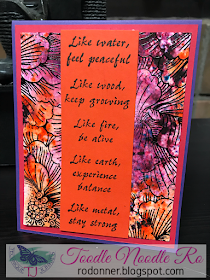 Like water,
feel peaceful
Like wood,
keep growing
Like fire,
be alive
Like earth,
experience
balance
Like metal,
stay strong
Toodle Noodle Ro
TJ
rodonner.blogspot.com